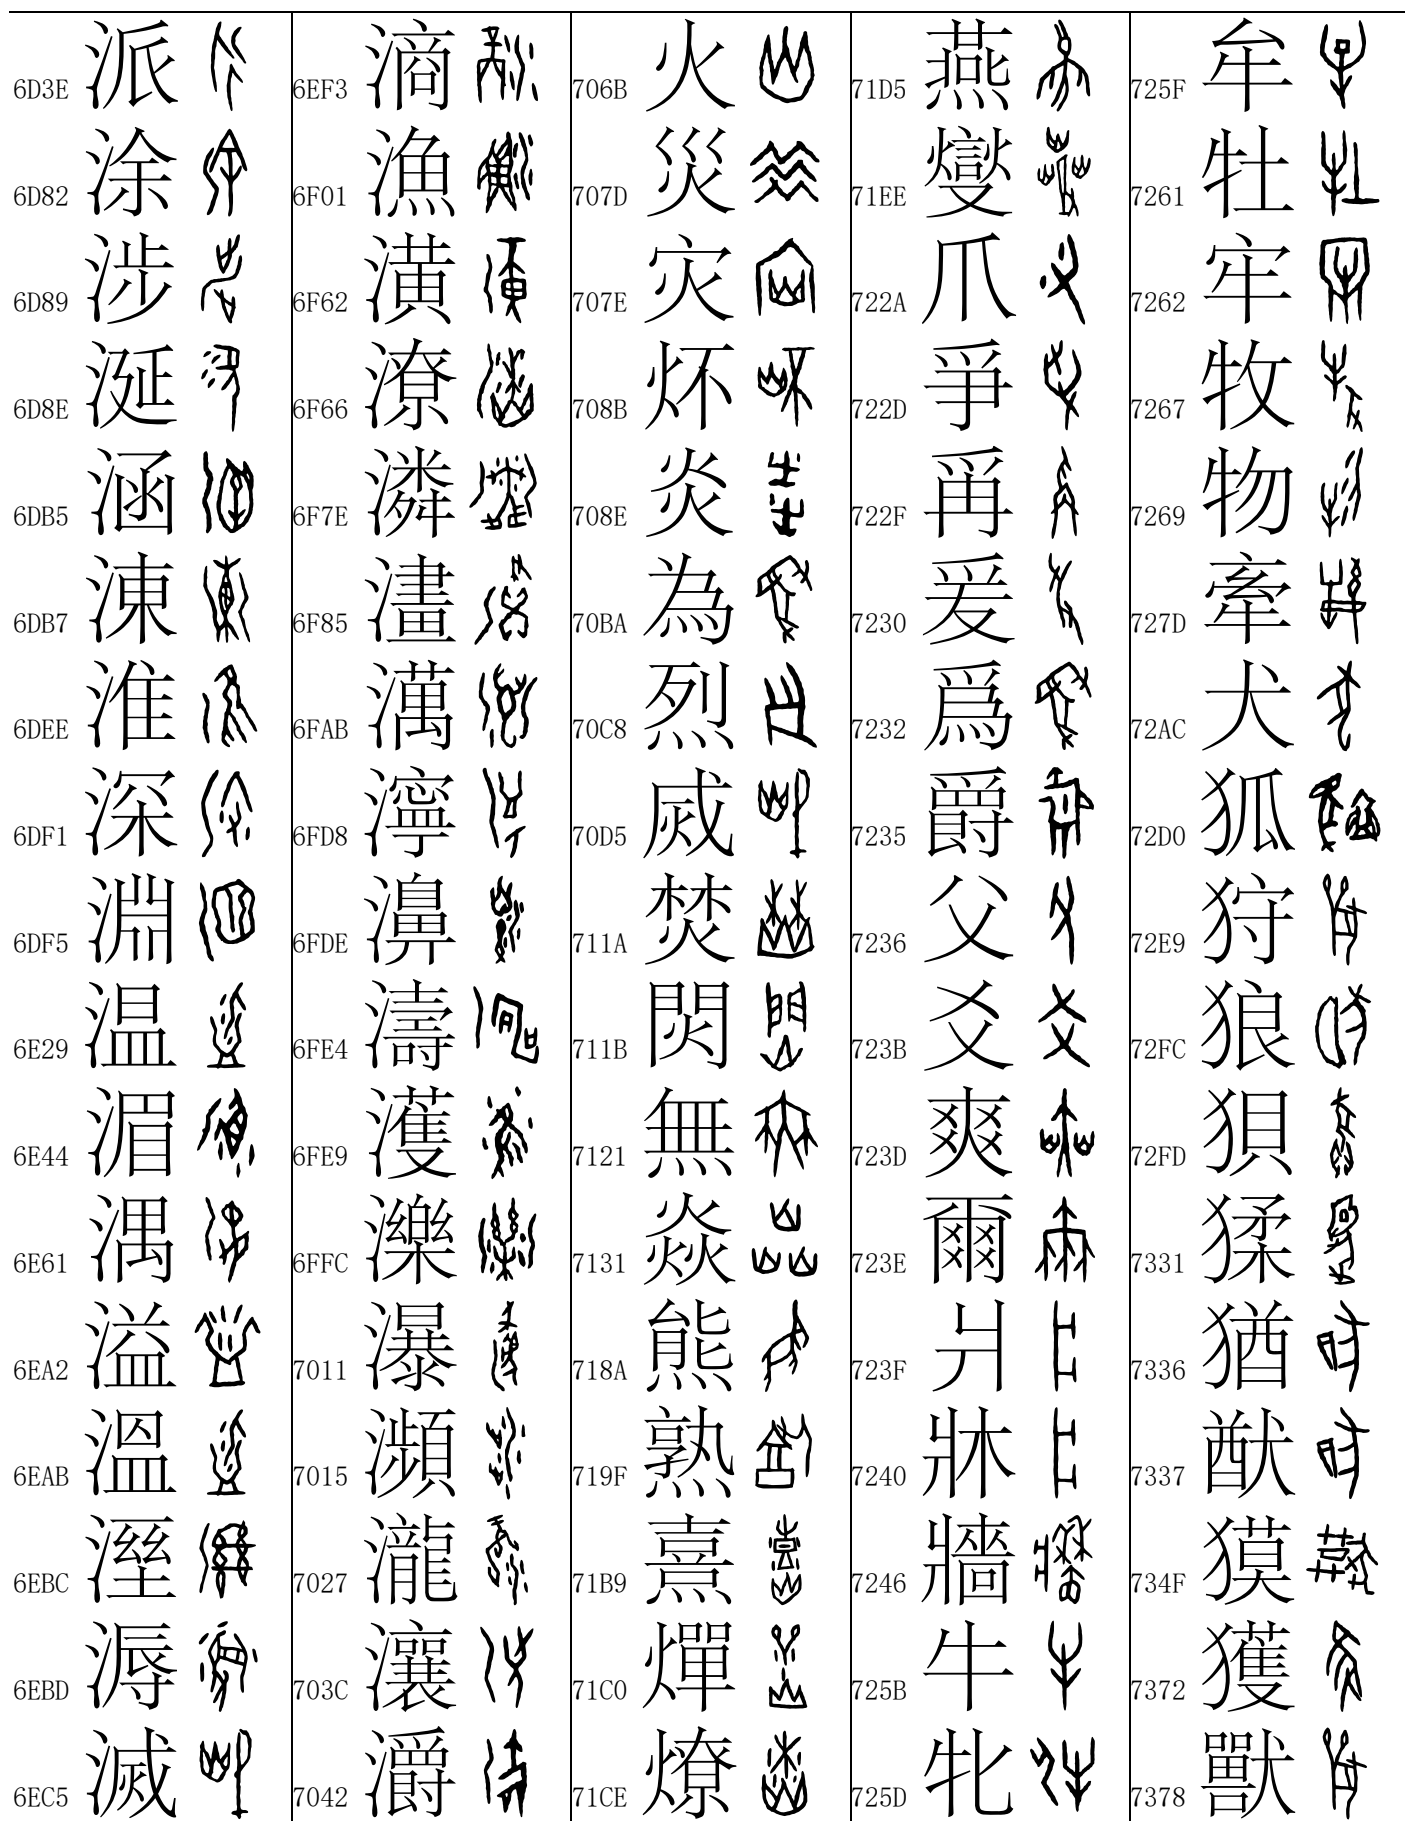 6D3E 派
6D82 涂
6D89 涉
6D8E 涎
6DB5 涵
6DB7 涷
6DEE 淮
6DF1 深
6DF5 淵
6E29 温
6E44 湄
6E61 湡
6EA2 溢
6EAB 溫
6EBC 溼
6EBD 溽
6EC5 滅
6EF3 滳
6F01 漁
6F62 潢
6F66 潦
6F7E 潾
6F85 澅
6FAB 澫
6FD8 濘
6FDE 濞
6FE4 濤
6FE9 濩
6FFC 濼
7011 瀑
7015 瀕
7027 瀧
703C 瀼
7042 灂
706B 火
707D 災
707E 灾
708B 炋
708E 炎
70BA 為
70C8 烈
70D5 烕
711A 焚
711B 焛
7121 無
7131 焱
718A 熊
719F 熟
71B9 熹
71C0 燀
71CE 燎
71D5 燕
71EE 燮
722A 爪
722D 爭
722F 爯
7230 爰
7232 爲
7235 爵
7236 父
723B 爻
723D 爽
723E 爾
723F 爿
7240 牀
7246 牆
725B 牛
725D 牝
725F 牟
7261 牡
7262 牢
7267 牧
7269 物
727D 牽
72AC 犬
72D0 狐
72E9 狩
72FC 狼
72FD 狽
7331 猱
7336 猶
7337 猷
734F 獏
7372 獲
7378 獸